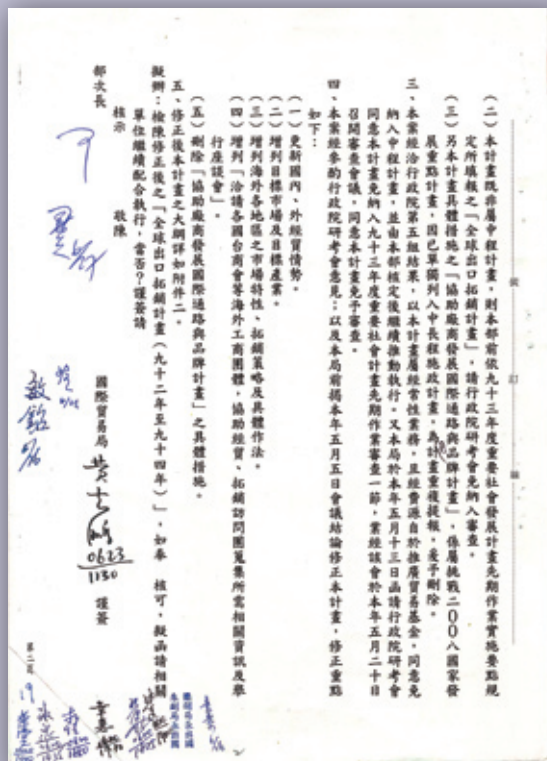 裝訂線
(二)本計畫既非屬中程計畫,則本部前依九十三年度重要社會發展計畫先期作業實施要點規
定所填報之「全球出口拓銷計畫」,請行政院研考會免納入審查。
(三)另本計畫具體措施之「協助廠商發展國際通路與品牌計畫」,係屬挑戰二00八國家發
展重點計畫,因已單獨列入中長程施政計畫,為免計畫重複提報,爰予刪除。
三、本案經洽行政院第五組結果,以本計畫屬經常性業務,且經費源自於推廣貿易基金,同意免
納入中程計畫,並由本部核定後繼續推動執行。又本局於本年五月十三日函請行政院研考會
同意本計畫免納入九十三年度重要社會計畫先期作業審查一節,業經該會於本年五月二十日
召開審查會議,同意本計畫免予審查。
四、本案經參酌行政院研考會意見,以及本局前揭本年五月五日會議結論修正本計畫,修正重點
如下:
(一)更新國內、外經貿情勢。
(二)增列目標市場及目標產業。
(三)增列海外各地區之市場特性、拓銷策略及具體作法。
(四)增列「洽請各國台商會等海外工商團體,協助經貿、拓銷訪問團蒐集所需相關資訊及舉
行座談會」。
(五)刪除「協助廠商發展國際通路與品牌計畫」之具體措施。
五、修正後本計畫之大綱詳如附件二。
擬辦:檢陳修正後之「全球出口拓銷計畫(九十二年至九十四年)」,如奉 核可,擬函請相關
單位繼續配合執行,當否?謹簽請
核示
敬陳
部次長
國際貿易局 黃志鵬 0623 1130 謹簽
第二頁